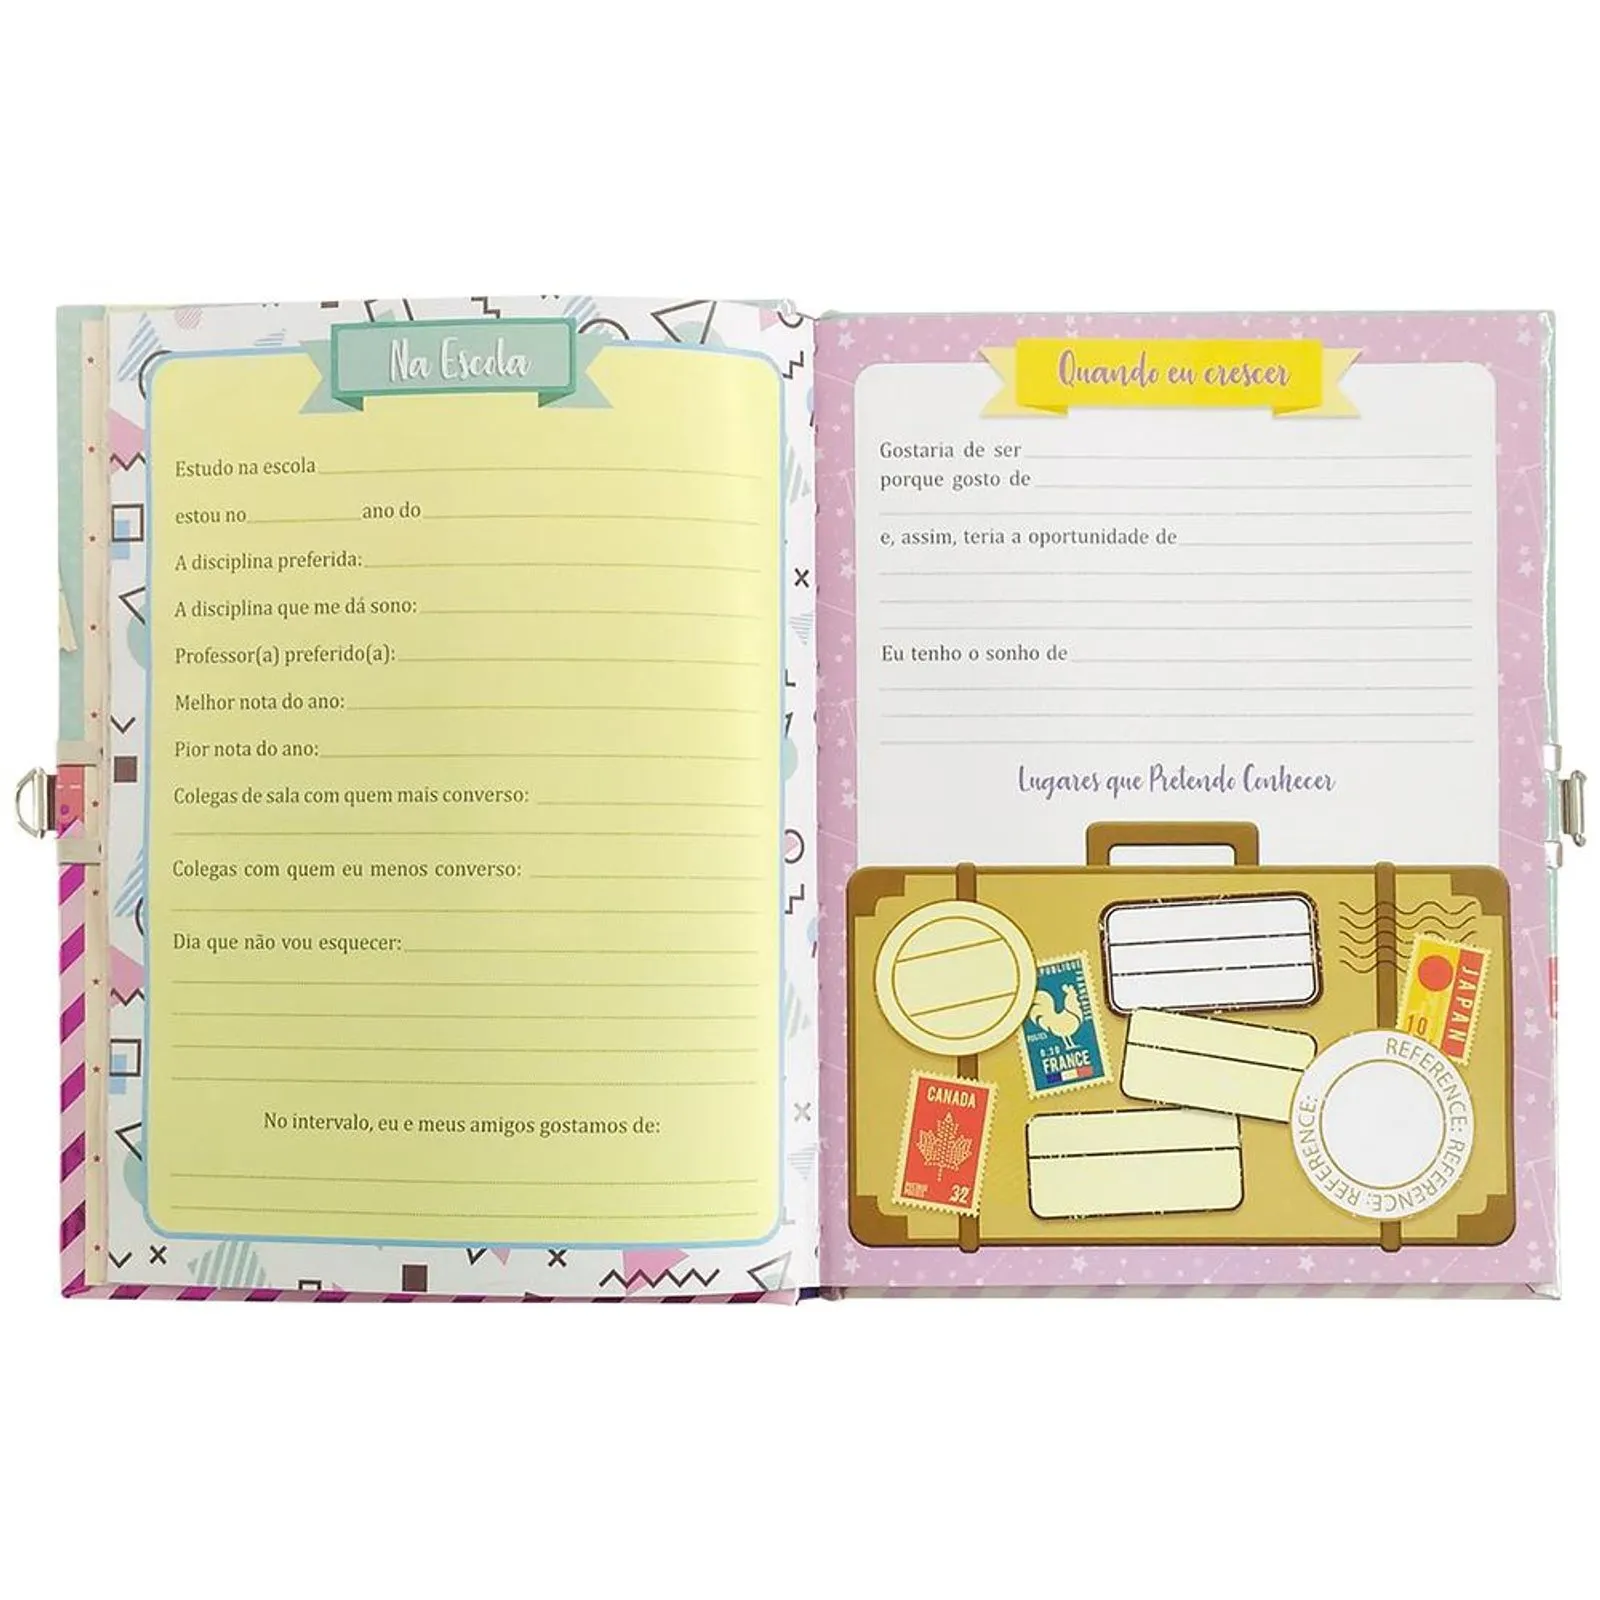 Na Escola
Estudo na escola
estou no ano do
A disciplina preferida:
A disciplina que me dá sono:
Professor(a) preferido(a):
Melhor nota do ano:
Pior nota do ano:
Colegas de sala com quem mais converso:
Colegas com quem eu menos converso:
Dia que não vou esquecer:
No intervalo, eu e meus amigos gostamos de:
Quando eu crescer
Gostaria de ser
porque gosto de
e, assim, teria a oportunidade de
Eu tenho o sonho de
Lugares que Pretendo Conhecer
POSTES
0.30
FRANCE
JAPAN
10
CANADA
32
REFERENCE: REFERENCE: REFERENCE: